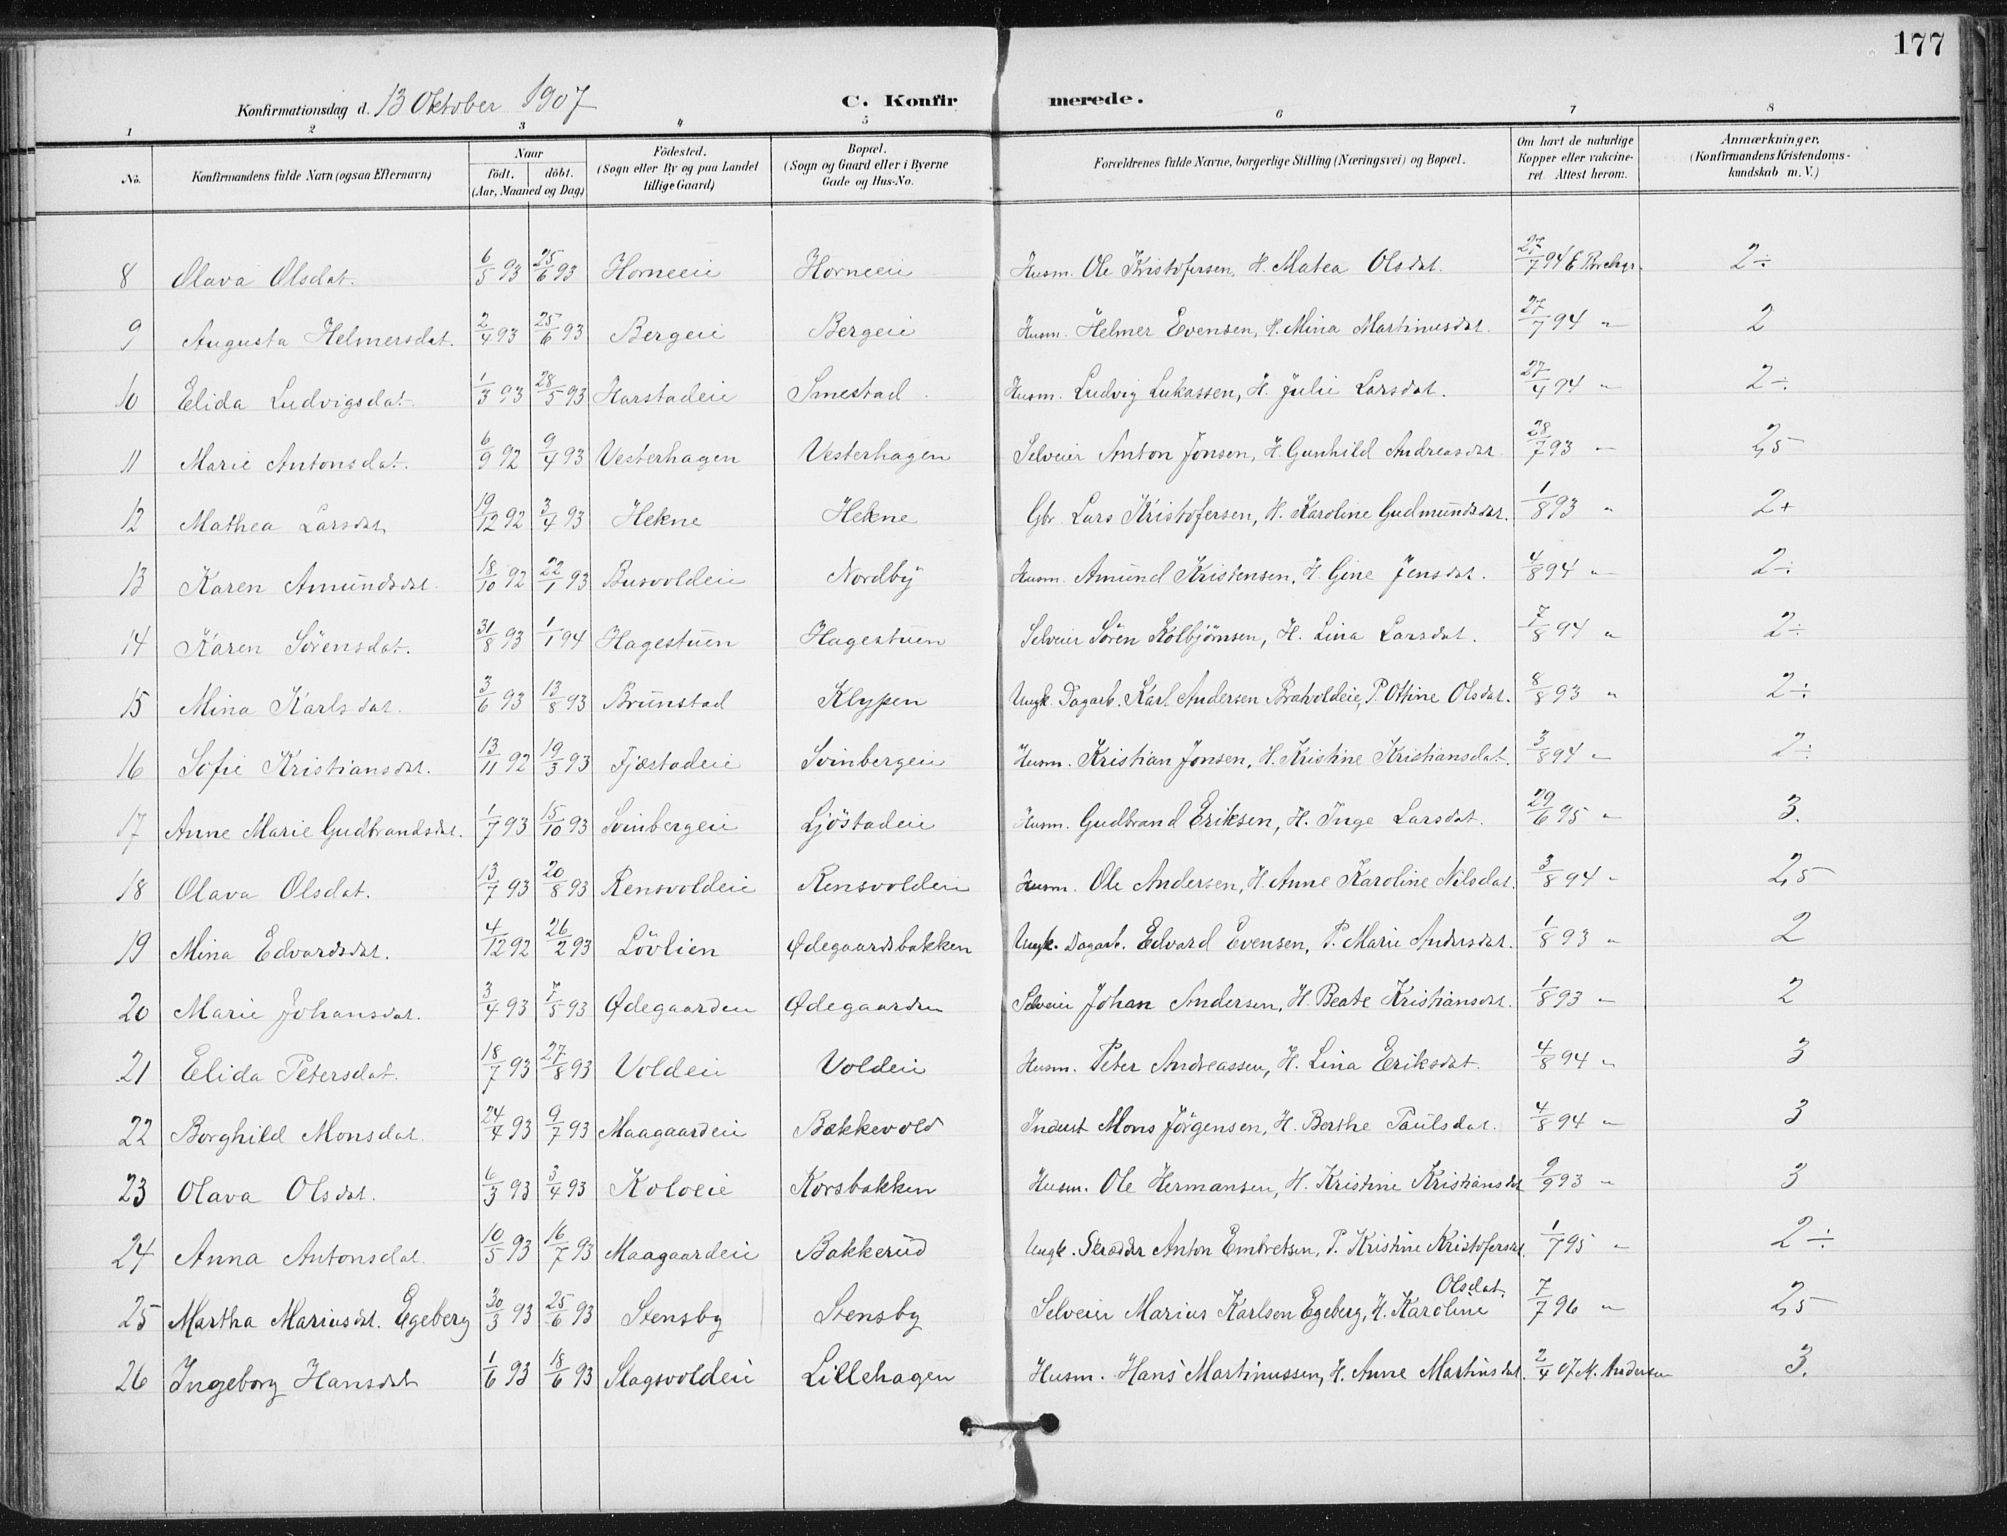 177
Konfirmationsdag d. 13 Oktober 1907 C. Konfirmerede.
1 2 3 4 5 6 7 8
No. Konfirmandens fulde Navn (ogsaa Efternavn) Naar födt. döbt. (Aar, Maaned og Dag) Födested. (Sogn eller By og paa Landet tillige Gaard) Bopæl. (Sogn og Gaard eller i Byerne Gade og Hus-No. Forældrenes fulde Navne, borgerlige Stilling (Næringsvei) og Bopæl. Om havt de naturlige Kopper eller vaccineret. Attest herom. Anmærkninger, (Konfirmandens Kristendomskundskab m. V.)
8 Olava Olsdat. 6/5 93 25/6 93 Horneeie Horneeie Husm. Ole Kristofersen, H. Matea Olsdat. 27/7 94 E 2÷
9 Augusta Helmersdat. 2/4 93 25/6 93 Bergeie Bergeie Husm. Helmer Evensen, H. Mina Martinusdat. 27/7 94 " 2
10 Elida Ludvigsdat. 1/3 93 28/5 93 Harstadeie Smestad Husm. Ludvig Lukassen, H. Julie Larsdat. 27/4 94 " 2÷
11 Marie Antonsdat. 6/9 92 9/4 93 Vesterhagen Vesterhagen Selveier Anton Jonsen, H. Gunhild Andreasdat. 28/7 93 " 2,5
12 Mathea Larsdat. 19/12 92 3/4 93 Hekne Hekne Gbr. Lars Kristofersen, H. Karoline Gudmundsdat. 1/8 93 " 2+
13 Karen Amundsdat. 18/10 92 22/1 93 Busvoldeie Nordby Husm. Amund Kristensen, H. Gine Jensdat. 4/8 94 " 2÷
14 Karen Sörensdat. 31/8 93 1/1 94 Hagestuen Hagestuen Selveier Sören Kolbjörnsen, H. Lina Larsdat. 7/8 94 " 2÷
15 Mina Karlsdat. 3/6 93 13/8 93 Brunstad Klypen Ungk. Dagarb. Karl Andersen Braholdeie, P. Ottine Olsdat. 8/8 93 " 2÷
16 Sofie Kristiansdat. 13/11 92 19/3 93 Fjæstadeie Svinbergeie Husm. Kristian Jonsen, H. Kristine Kristiansdat. 3/8 94 " 2÷
17 Anne Marie Gudbrandsdat. 1/7 93 15/10 93 Svinbergeie Ljöstadeie Husm. Gudbrand Eriksen, H. Inge Larsdat. 29/6 95 " 3.
18 Olava Olsdat. 13/7 93 20/8 93 Rensvoldeie Rensvoldeie Husm. Ole Andersen, H. Anne Karoline Nilsdat. 3/8 94 " 2,5
19 Mina Edvardsdat. 4/12 92 26/2 93 Lövlien Ødegaardsbakken Ungk. Dagarb. Edvard Evensen, P. Marie Andersdat. 1/8 93 " 2
20 Marie Johansdat. 3/4 93 7/5 93 Ødegaarden Ødegaarden Selveier Johan Andersen, H. Beate Kristiansdat. 1/8 93 " 2
21 Elida Petersdat. 18/7 93 27/8 93 Voldeie Voldeie Husm. Peter Andreassen, H. Lina Eriksdat. 4/8 94 " 3
22 Borghild Monsdat. 24/4 93 9/7 93 Maagaardeie Bakkevold Inderst Mons Jörgensen, H. Berthe Paulsdat. 4/8 94 " 3
23 Olava Olsdat. 6/3 93 3/4 93 Koloeie Korsbakken Husm. Ole Hermansen, H. Kristine Kristiansdat 2/9 93 " 3
24 Anna Antonsdat. 10/5 93 16/7 93 Maagaardeie Bakkerud Ungk. Skrædder Anton Embretsen, P. Kristine Kristofersdat. 1/7 95 " 2÷
25 Martha Mariusdat. Egeberg 30/3 93 25/6 93 Stensby Stensby Selveier Marius Karlsen Egeberg, H. Karoline Olsdat. 7/7 96 " 2,5
26 Ingeborg Hansdat 1/6 93 18/6 93 Slagsvoldeie Lillehagen Husm. Hans Martinussen, H. Anne Martinsdat. 2/4 07. M. Andersen 3.